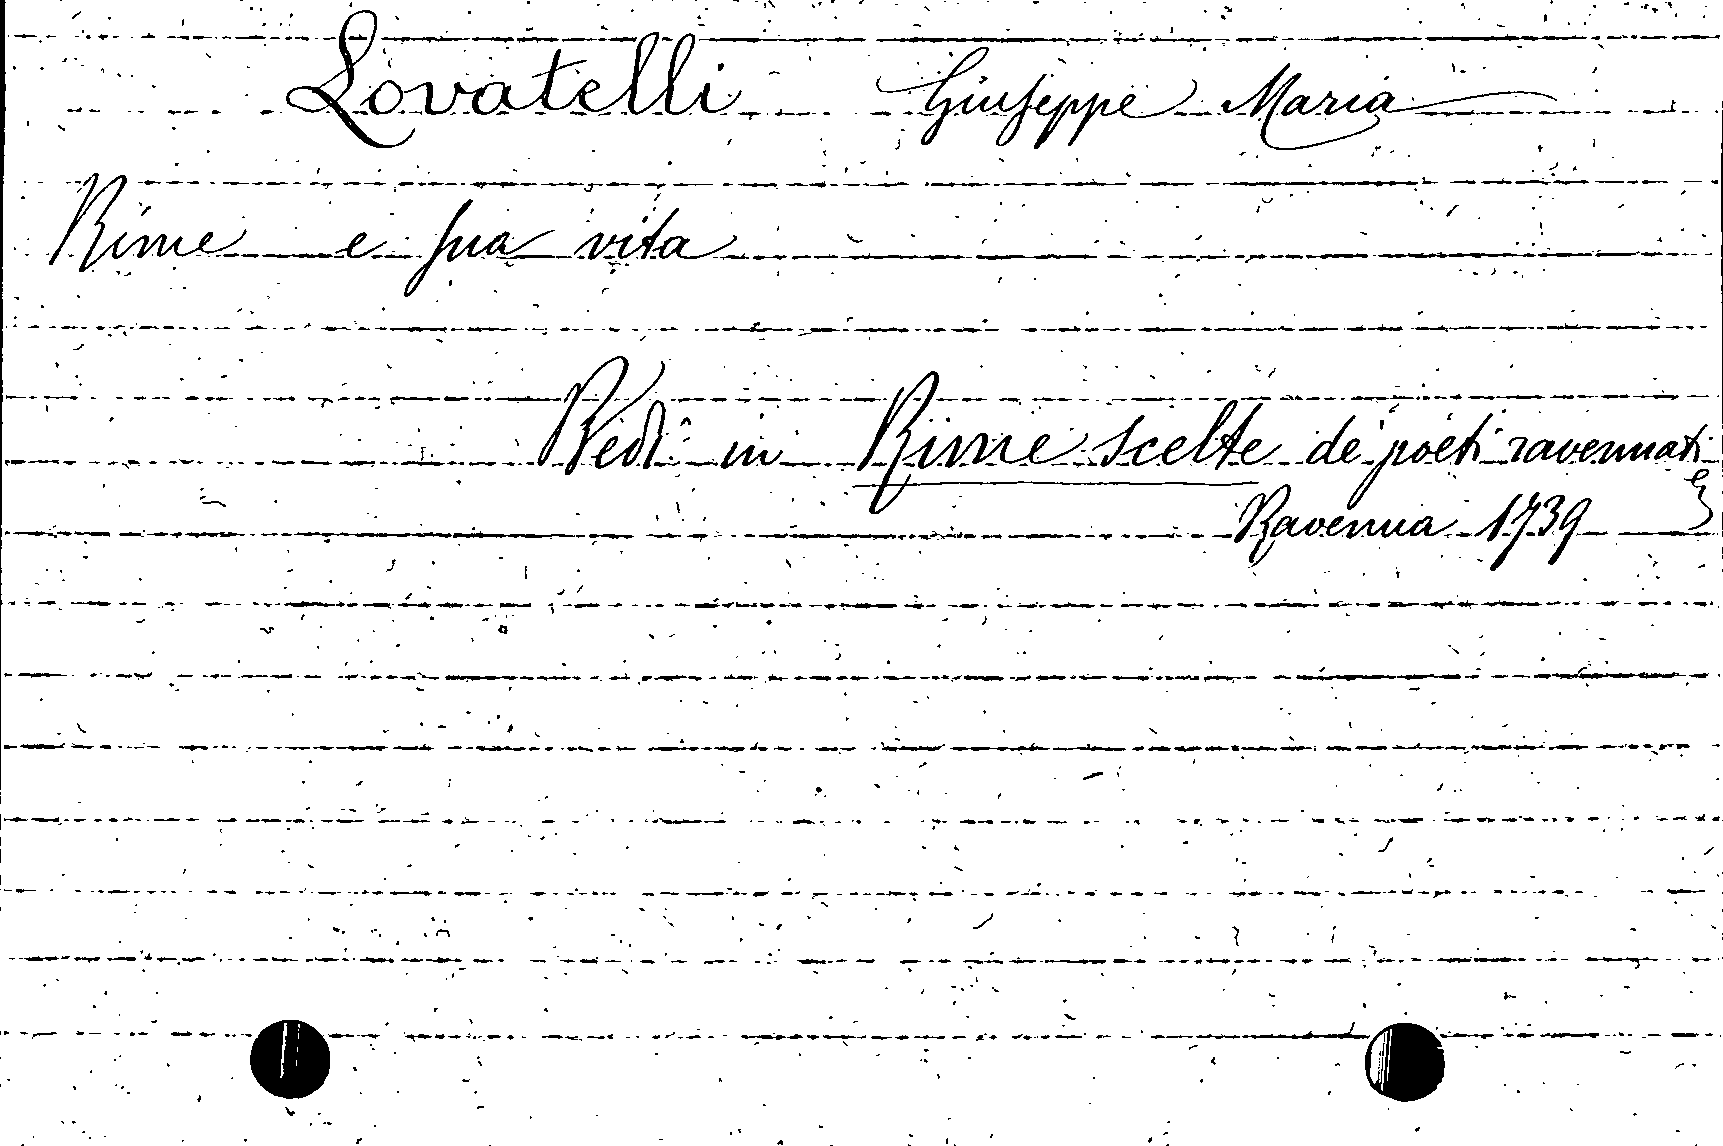 Lovatelli Giuseppe Maria
Rime e sua vita
Vedi in Rime scelte de' poeti ravennati
Ravenna 1739